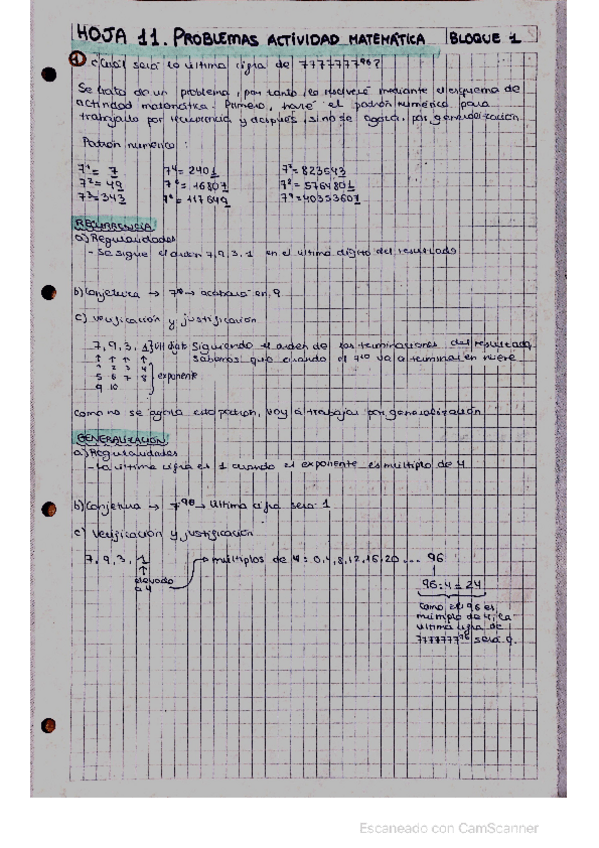 HOJA 11. PROBLEMAS ACTIVIDAD MATEMÁTICA BLOQUE 1
1 ¿Cuál será la última cifra de 7777777⁹⁶?
Se trata de un problema, por tanto, lo resolveré mediante el esquema de
actividad matemática. Primero, haré el patrón numérico para
trabajarlo por recurrencia y después, si no se agota, por generalización
Patrón numérico:
7¹ = 7 7⁴ = 2401 7⁷ = 823543
7² = 49 7⁵ = 16807 7⁸ = 5764801
7³ = 343 7⁶ = 117649 7⁹ = 40353607
RECURRENCIA
a) Regularidades
- Se sigue el orden 7, 9, 3, 1 en el último dígito del resultado
b) Conjetura → 7¹⁰ → acabará en 9
c) Verificación y justificación
7, 9, 3, 1 Siguiendo el orden de las terminaciones del resultado
↑ ↑ ↑ ↑ sabemos que cuando el 7¹⁰ va a terminar en nueve
1 2 3 4
5 6 7 8 exponente
9 10
Como no se agota este patrón, voy a trabajar por generalización
GENERALIZACIÓN
a) Regularidades
- La última cifra es 1 cuando el exponente es múltiplo de 4
b) Conjetura → 7⁹⁶ → última cifra será 1
c) Verificación y justificación
7, 9, 3, 1 → múltiplos de 4: 0, 4, 8, 12, 16, 20 ... 96
↑
elevado
a 4
96:4 = 24
como el 96 es
múltiplo de 4, la
última cifra de
7777777⁹⁶ será
Escaneado con CamScanner